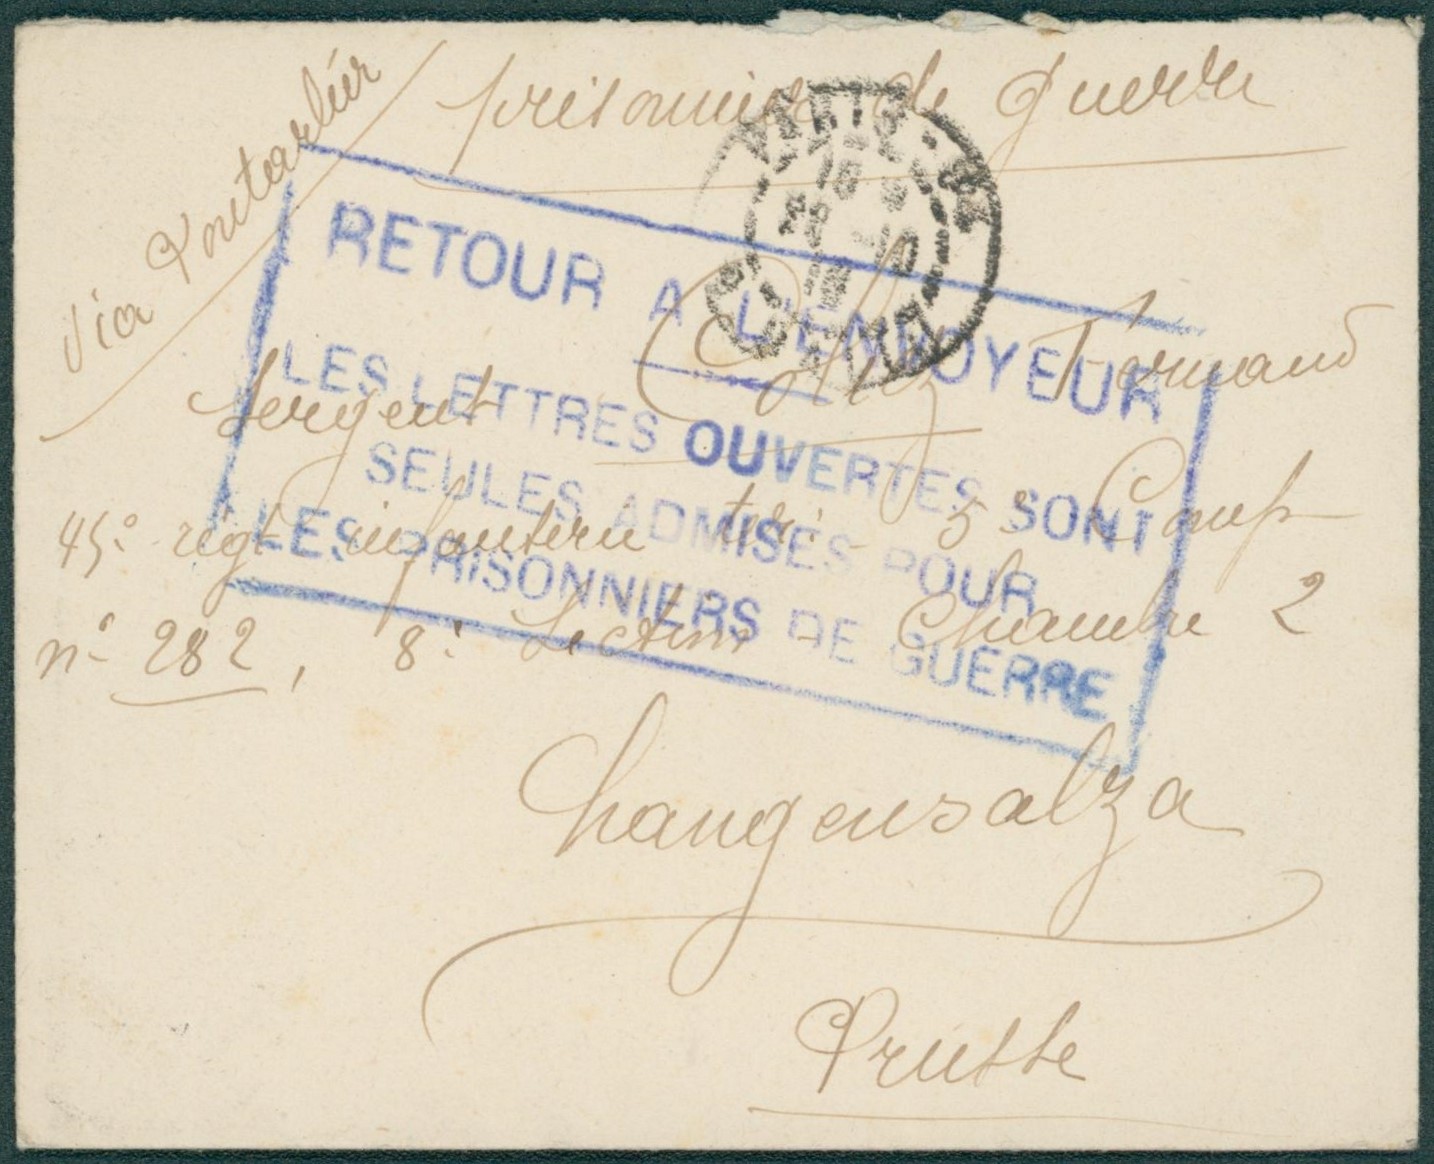 via Pontarlier
prisonnier de Guerre
RETOUR A L'ENVOYEUR
LES LETTRES OUVERTES SONT
SEULES ADMISES POUR
LES PRISONNIERS DE GUERRE
PARIS
Sergent
45e regt infanterie ter: - 3e Comp
n° 282, 8e Section - Chambre 2
Changensalza
Prusse